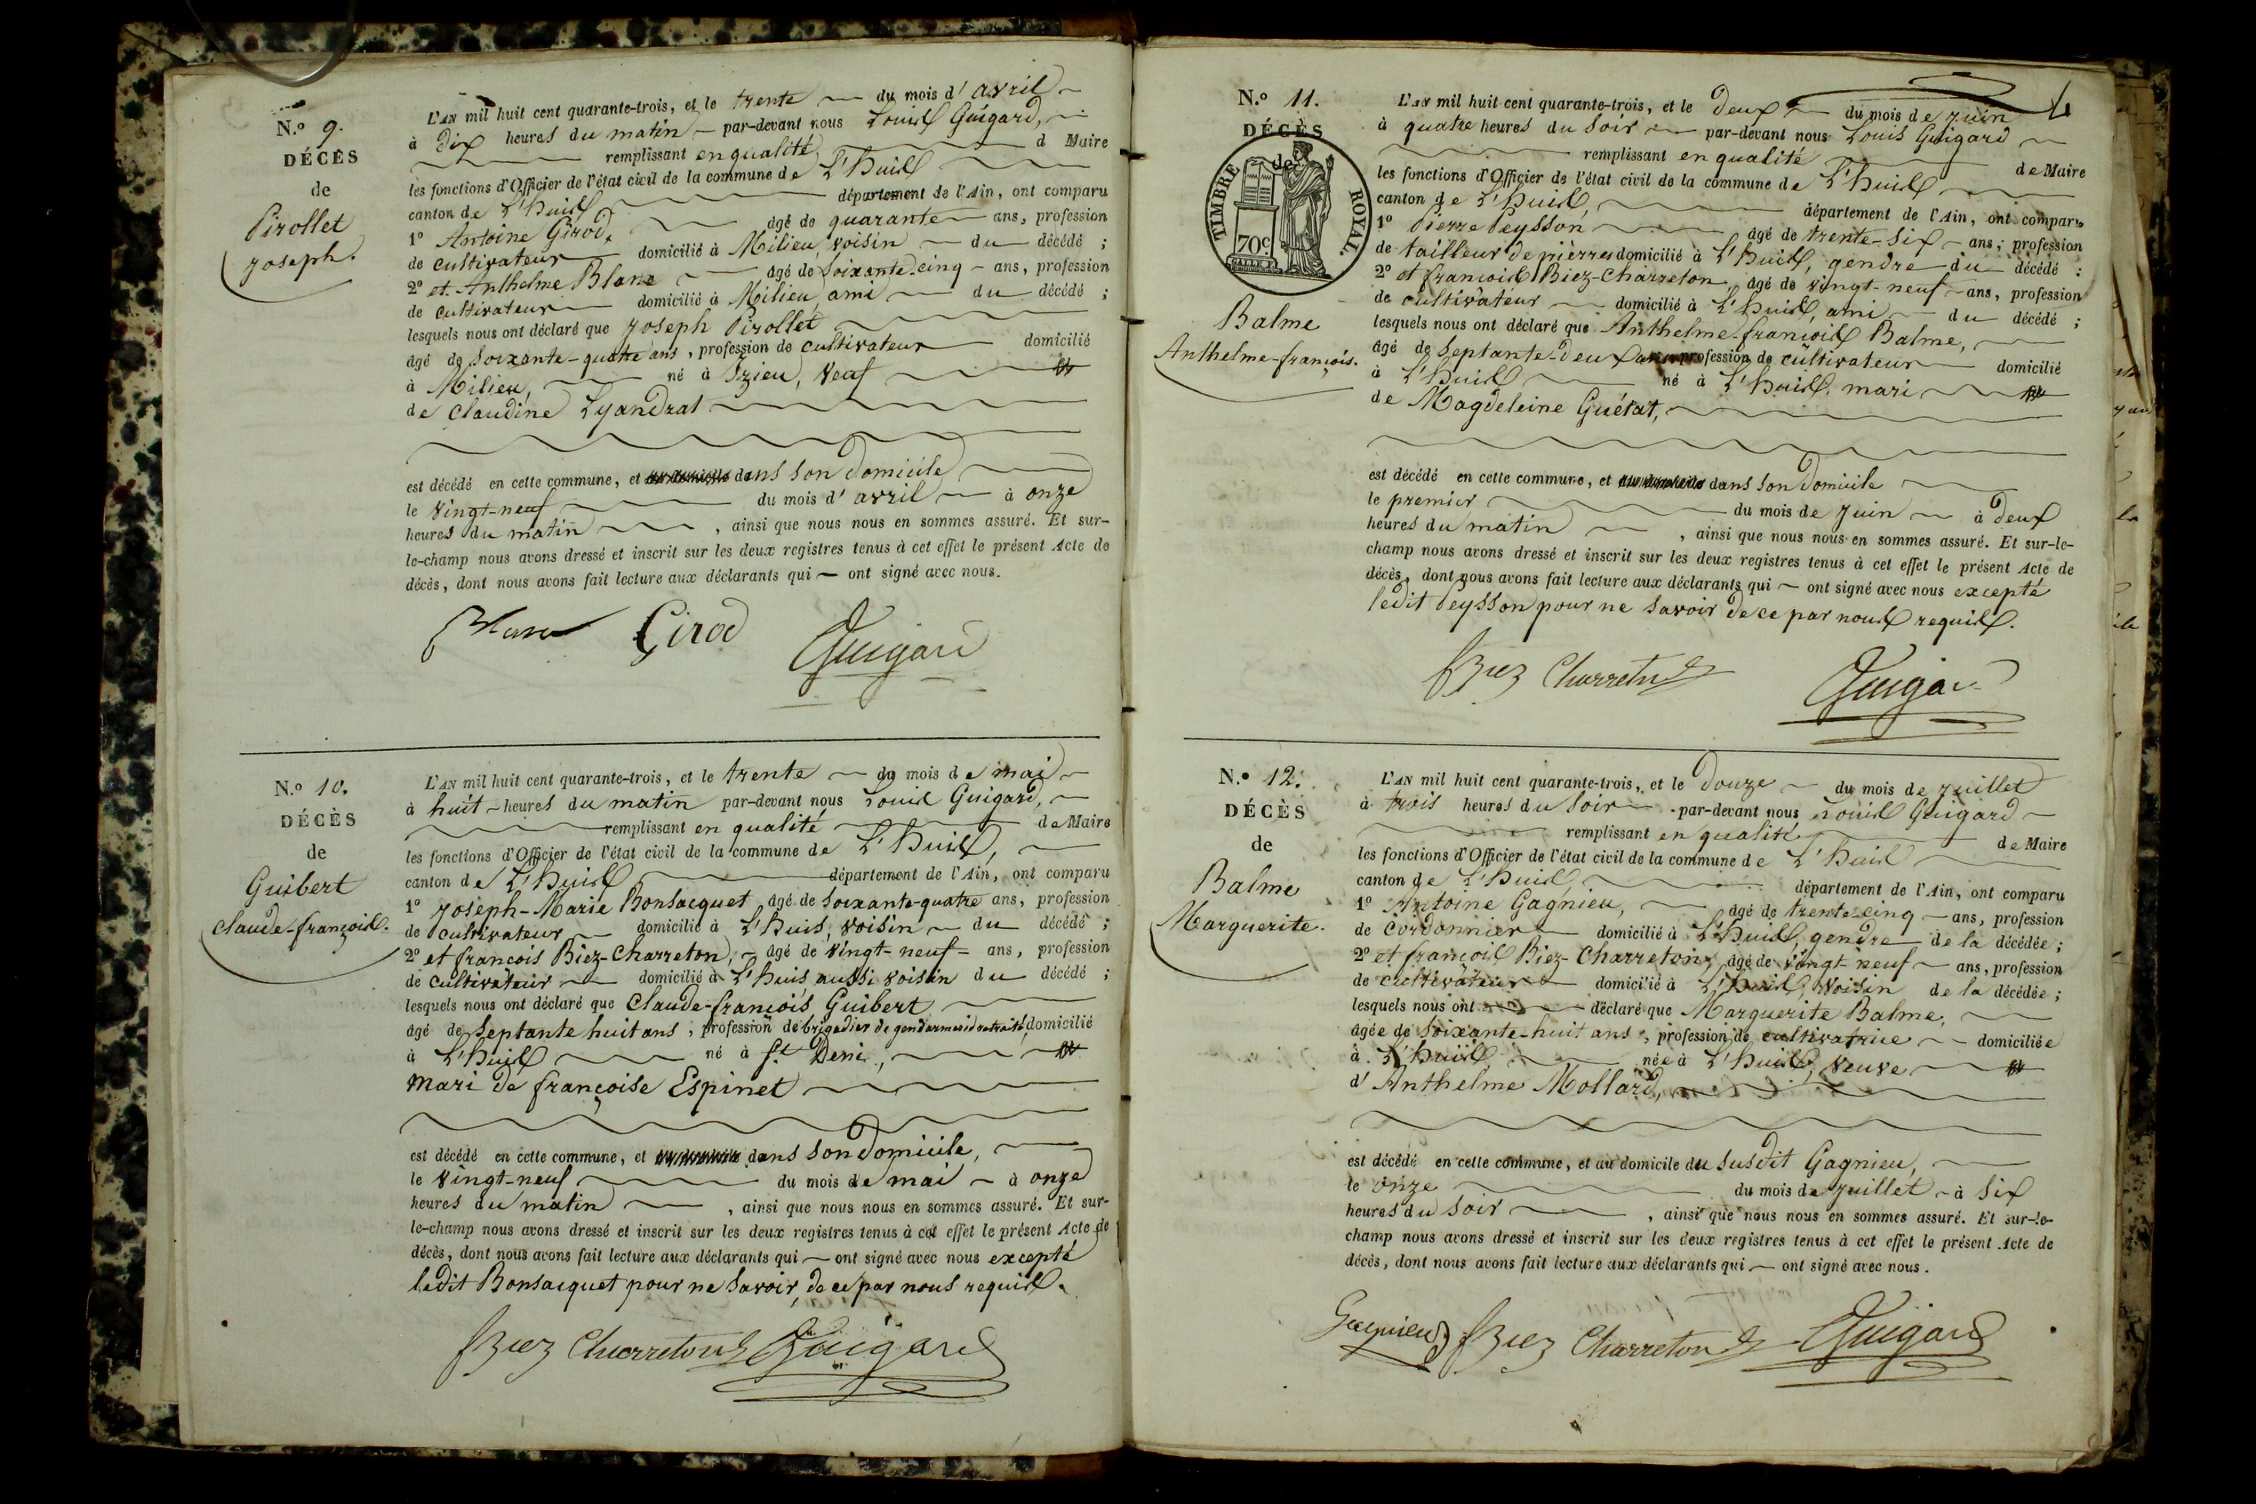 N.° 9.
DÉCÈS
de
Pirollet
Joseph.
L'AN mil huit cent quarante-trois, et le trente du mois d'avril
à dix heures du matin par-devant nous Louis Guigard,
remplissant en qualité d Maire
les fonctions d'Officier de l'état civil de la commune de L'huis
canton de L'huis département de l'Ain, ont comparu
1° Antoine Girod, agé de quarante ans, profession
de cultivateur domicilié à Milieu, voisin du décédé ;
2° et Anthelme Blanc agé de soixante cinq ans, profession
de cultivateur domicilié à Milieu, ami du décédé ;
lesquels nous ont déclaré que Joseph Pirollet
agé de soixante-quatre ans, profession de cultivateur domicilié
à Milieu, né à Izieu, veuf
de Claudine Lyandrat
est décédé en cette commune, et dans son domicile
le vingt-neuf du mois d'avril à onze
heures du matin, ainsi que nous nous en sommes assuré. Et sur-
le-champ nous avons dressé et inscrit sur les deux registres tenus à cet effet le présent Acte de
décès, dont nous avons fait lecture aux déclarants qui ont signé avec nous.
Blanc Girod Guigard
N.° 10.
DÉCÈS
de
Guibert
Claude-françois.
L'AN mil huit cent quarante-trois, et le trente du mois de mai
à huit heures du matin par-devant nous Louis Guigard,
remplissant en qualité de Maire
les fonctions d'Officier de l'état civil de la commune de L'huis,
canton de L'huis département de l'Ain, ont comparu
1° Joseph-Marie Bonsacquet agé de soixante-quatre ans, profession
de cultivateur domicilié à L'huis, voisin du décédé ;
2° et françois Biez-Charreton, agé de vingt-neuf ans, profession
de cultivateur domicilié à L'huis aussi voisin du décédé ;
lesquels nous ont déclaré que Claude-françois Guibert
agé de septante huit ans, profession de brigadier de gendarmerie retraité, domicilié
à L'huis né à St Deni,
mari de françoise Espinet
est décédé en cette commune, et dans son domicile,
le vingt-neuf du mois de mai à onze
heures du matin, ainsi que nous nous en sommes assuré. Et sur-
le-champ nous avons dressé et inscrit sur les deux registres tenus à cet effet le présent Acte de
décès, dont nous avons fait lecture aux déclarants qui ont signé avec nous excepté
ledit Bonsacquet pour ne savoir, de ce par nous requis.
f Biez Charreton Guigard
4
N.° 11.
DÉCÈS
de
TIMBRE ROYAL.
70c
Balme
Anthelme-françois.
L'AN mil huit cent quarante-trois, et le deux du mois de juin
à quatre heures du soir par-devant nous Louis Guigard
remplissant en qualité de Maire
les fonctions d'Officier de l'état civil de la commune de L'huis
canton de L'huis, département de l'Ain, ont comparu
1° Pierre Peysson agé de trente-six ans, profession
de tailleur de pierres domicilié à L'huis, gendre du décédé ;
2° et françois Biez-Charreton, agé de vingt-neuf ans, profession
de cultivateur domicilié à L'huis, ami du décédé ;
lesquels nous ont déclaré que Anthelme-françois Balme,
agé de septante-deux ans, profession de cultivateur domicilié
à L'huis né à L'huis, mari
de Magdeleine Guétat,
est décédé en cette commune, et dans son domicile
le premier du mois de juin à deux
heures du matin, ainsi que nous nous en sommes assuré. Et sur-le-
champ nous avons dressé et inscrit sur les deux registres tenus à cet effet le présent Acte de
décès, dont nous avons fait lecture aux déclarants qui ont signé avec nous excepté
ledit Peysson pour ne savoir de ce par nous requis.
f Biez Charreton Guigard
N.° 12.
DÉCÈS
de
Balme
Marguerite.
L'AN mil huit cent quarante-trois, et le douze du mois de juillet
à trois heures du soir par-devant nous Louis Guigard
remplissant en qualité de Maire
les fonctions d'Officier de l'état civil de la commune de L'huis
canton de L'huis, département de l'Ain, ont comparu
1° Antoine Gagnieu, agé de trente-cinq ans, profession
de cordonnier domicilié à L'huis, gendre de la décédée ;
2° et françois Biez-Charreton, agé de vingt-neuf ans, profession
de cultivateur domicilié à L'huis, voisin de la décédée ;
lesquels nous ont déclaré que Marguerite Balme,
agée de soixante-huit ans, profession de cultivatrice domiciliée
à L'huis, née à L'huis, veuve
d'Anthelme Mollard,
est décédé en cette commune, et au domicile du susdit Gagnieu,
le onze du mois de juillet à six
heures du soir, ainsi que nous nous en sommes assuré. Et sur-le-
champ nous avons dressé et inscrit sur les deux registres tenus à cet effet le présent Acte de
décès, dont nous avons fait lecture aux déclarants qui ont signé avec nous.
Gagnieu f Biez Charreton Guigard